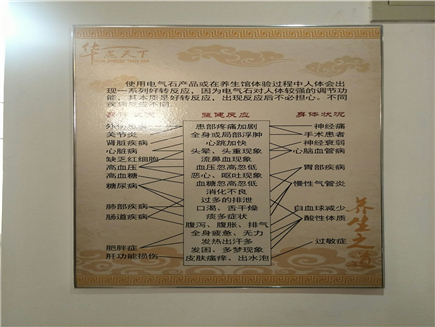 华 天下
使用电气石产品或在养生馆体验过程中人体会出
现一系列好转反应，因为电气石对人体较强的调节功
能，其本质是好转反应，出现反应后不必担心。不同
疾病反应不同
身体状况 症健反应 身体状况
患部疼痛加剧 神经痛
关节炎 全身或局部浮肿 手术患者
肾脏疾病 心跳加快 神经衰弱
心脏病 头晕、头重现象 心脑血管病
缺乏红细胞 流鼻血现象
高血压 血压忽高忽低 胃部疾病
高血糖 恶心、呕吐现象
糖尿病 血糖忽高忽低 慢性气管炎
消化不良
过多的排泄
肺部疾病 口渴、舌干燥 白血球减少
肠道疾病 痰多症状 酸性体质
腹泻、腹胀、排气
全身疲惫、无力
肥胖症 发热出汗多 过敏症
肝功能损伤 发困、多梦现象
皮肤瘙痒、出水泡
养生之道